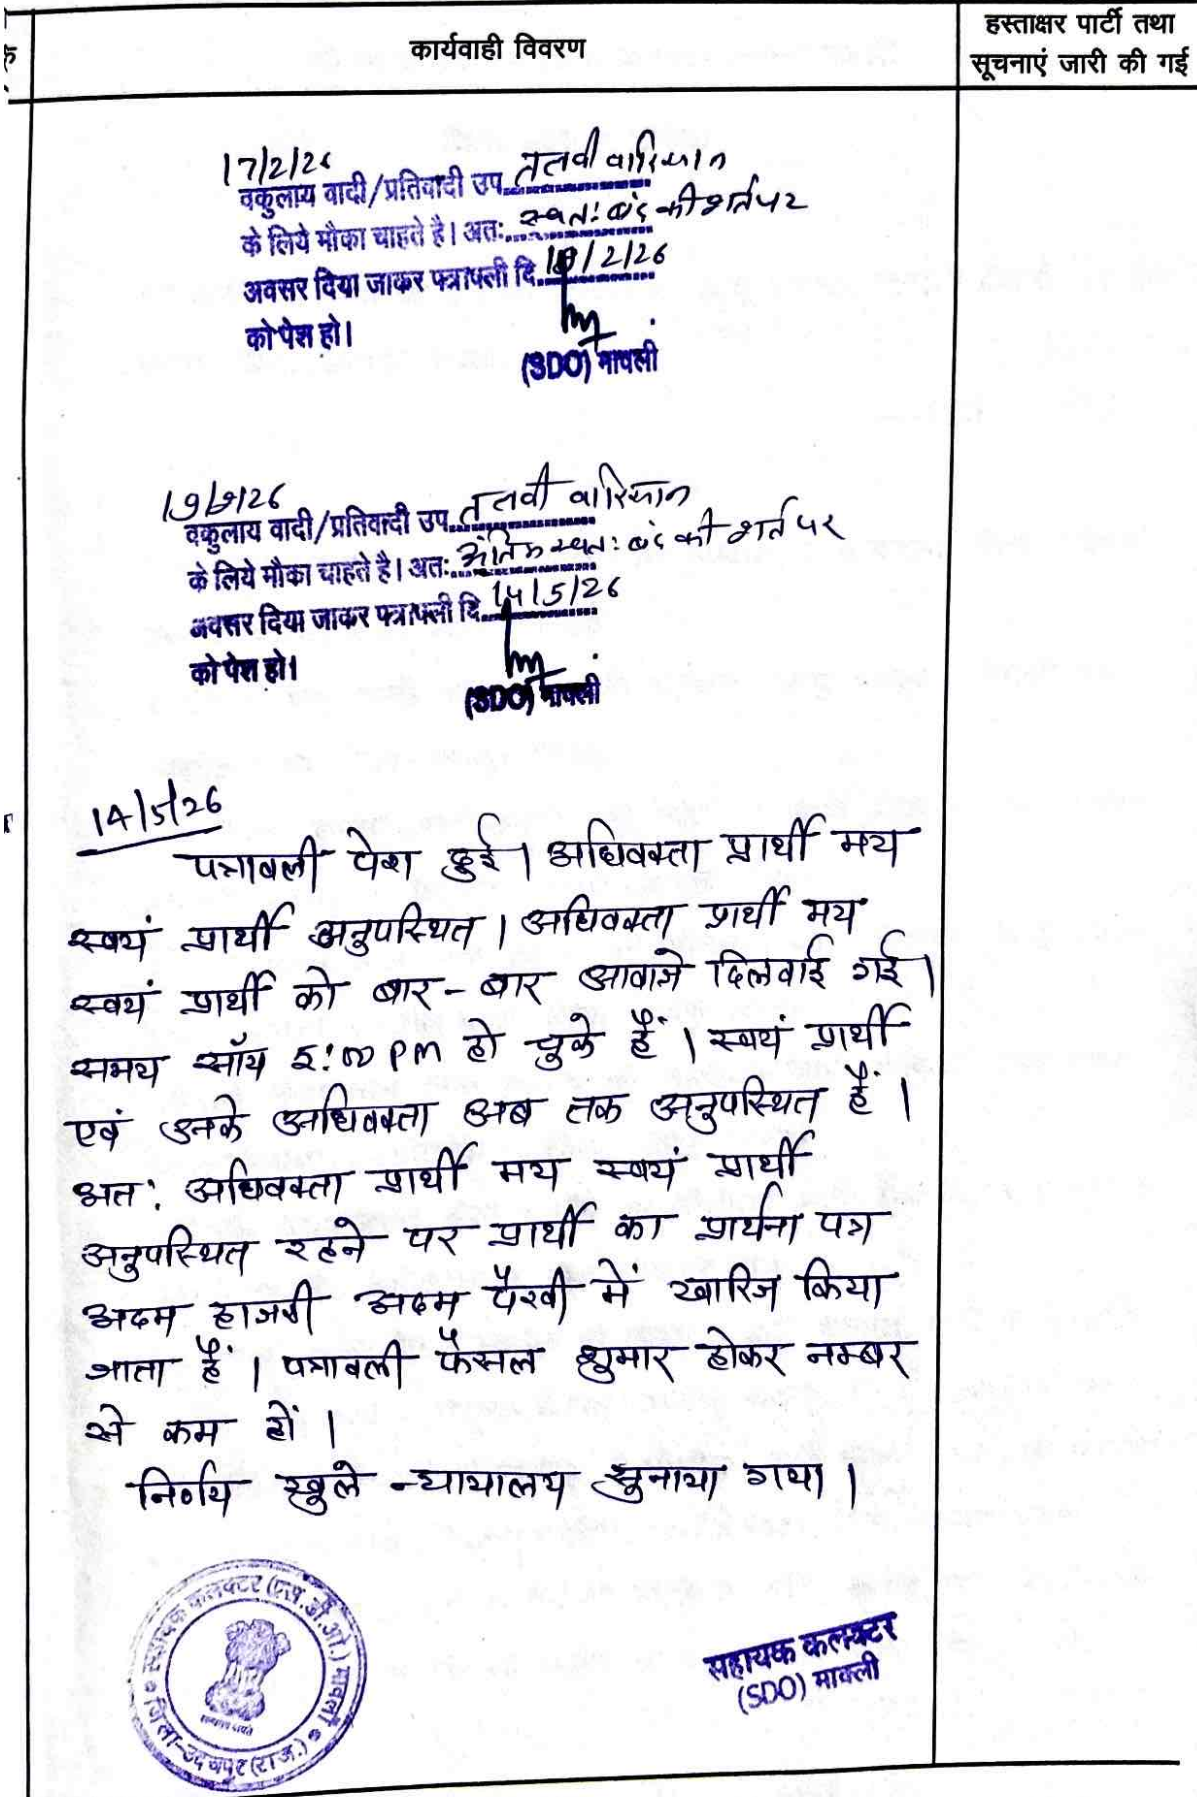 कार्यवाही विवरण
हस्ताक्षर पार्टी तथा
सूचनाएं जारी की गई
17/2/26
वकुलाय वादी/प्रतिवादी उप. तलवी वारिसान
के लिये मौका चाहते है। अतः स्वतः बंद की शर्त पर
अवसर दिया जाकर पत्रावली दि. /2/26
को पेश हो।
(SDO) मावली
19/2/26
वकुलाय वादी/प्रतिवादी उप. तलवी वारिसान
के लिये मौका चाहते है। अतः अंतिम स्वतः बंद की शर्त पर
अवसर दिया जाकर पत्रावली दि. 14/5/26
को पेश हो।
(SDO) मावली
14/5/26
पत्रावली पेश हुई। अधिवक्ता प्रार्थी मय
स्वयं प्रार्थी अनुपस्थित। अधिवक्ता प्रार्थी मय
स्वयं प्रार्थी को बार-बार आवाजे दिलवाई गई।
समय साँय 5:00 PM हो चुके हैं। स्वयं प्रार्थी
एवं उनके अधिवक्ता अब तक अनुपस्थित हैं।
अतः अधिवक्ता प्रार्थी मय स्वयं प्रार्थी
अनुपस्थित रहने पर प्रार्थी का प्रार्थना पत्र
अदम हाजरी अदम पैरवी में खारिज किया
जाता हैं। पत्रावली फैसल शुमार होकर नम्बर
से कम हों।
निर्णय खुले न्यायालय सुनाया गया।
सहायक कलक्टर (एस.डी.ओ.) मावली
जिला-उदयपुर (राज.)
सत्यमेव जयते
सहायक कलक्टर
(SDO) मावली